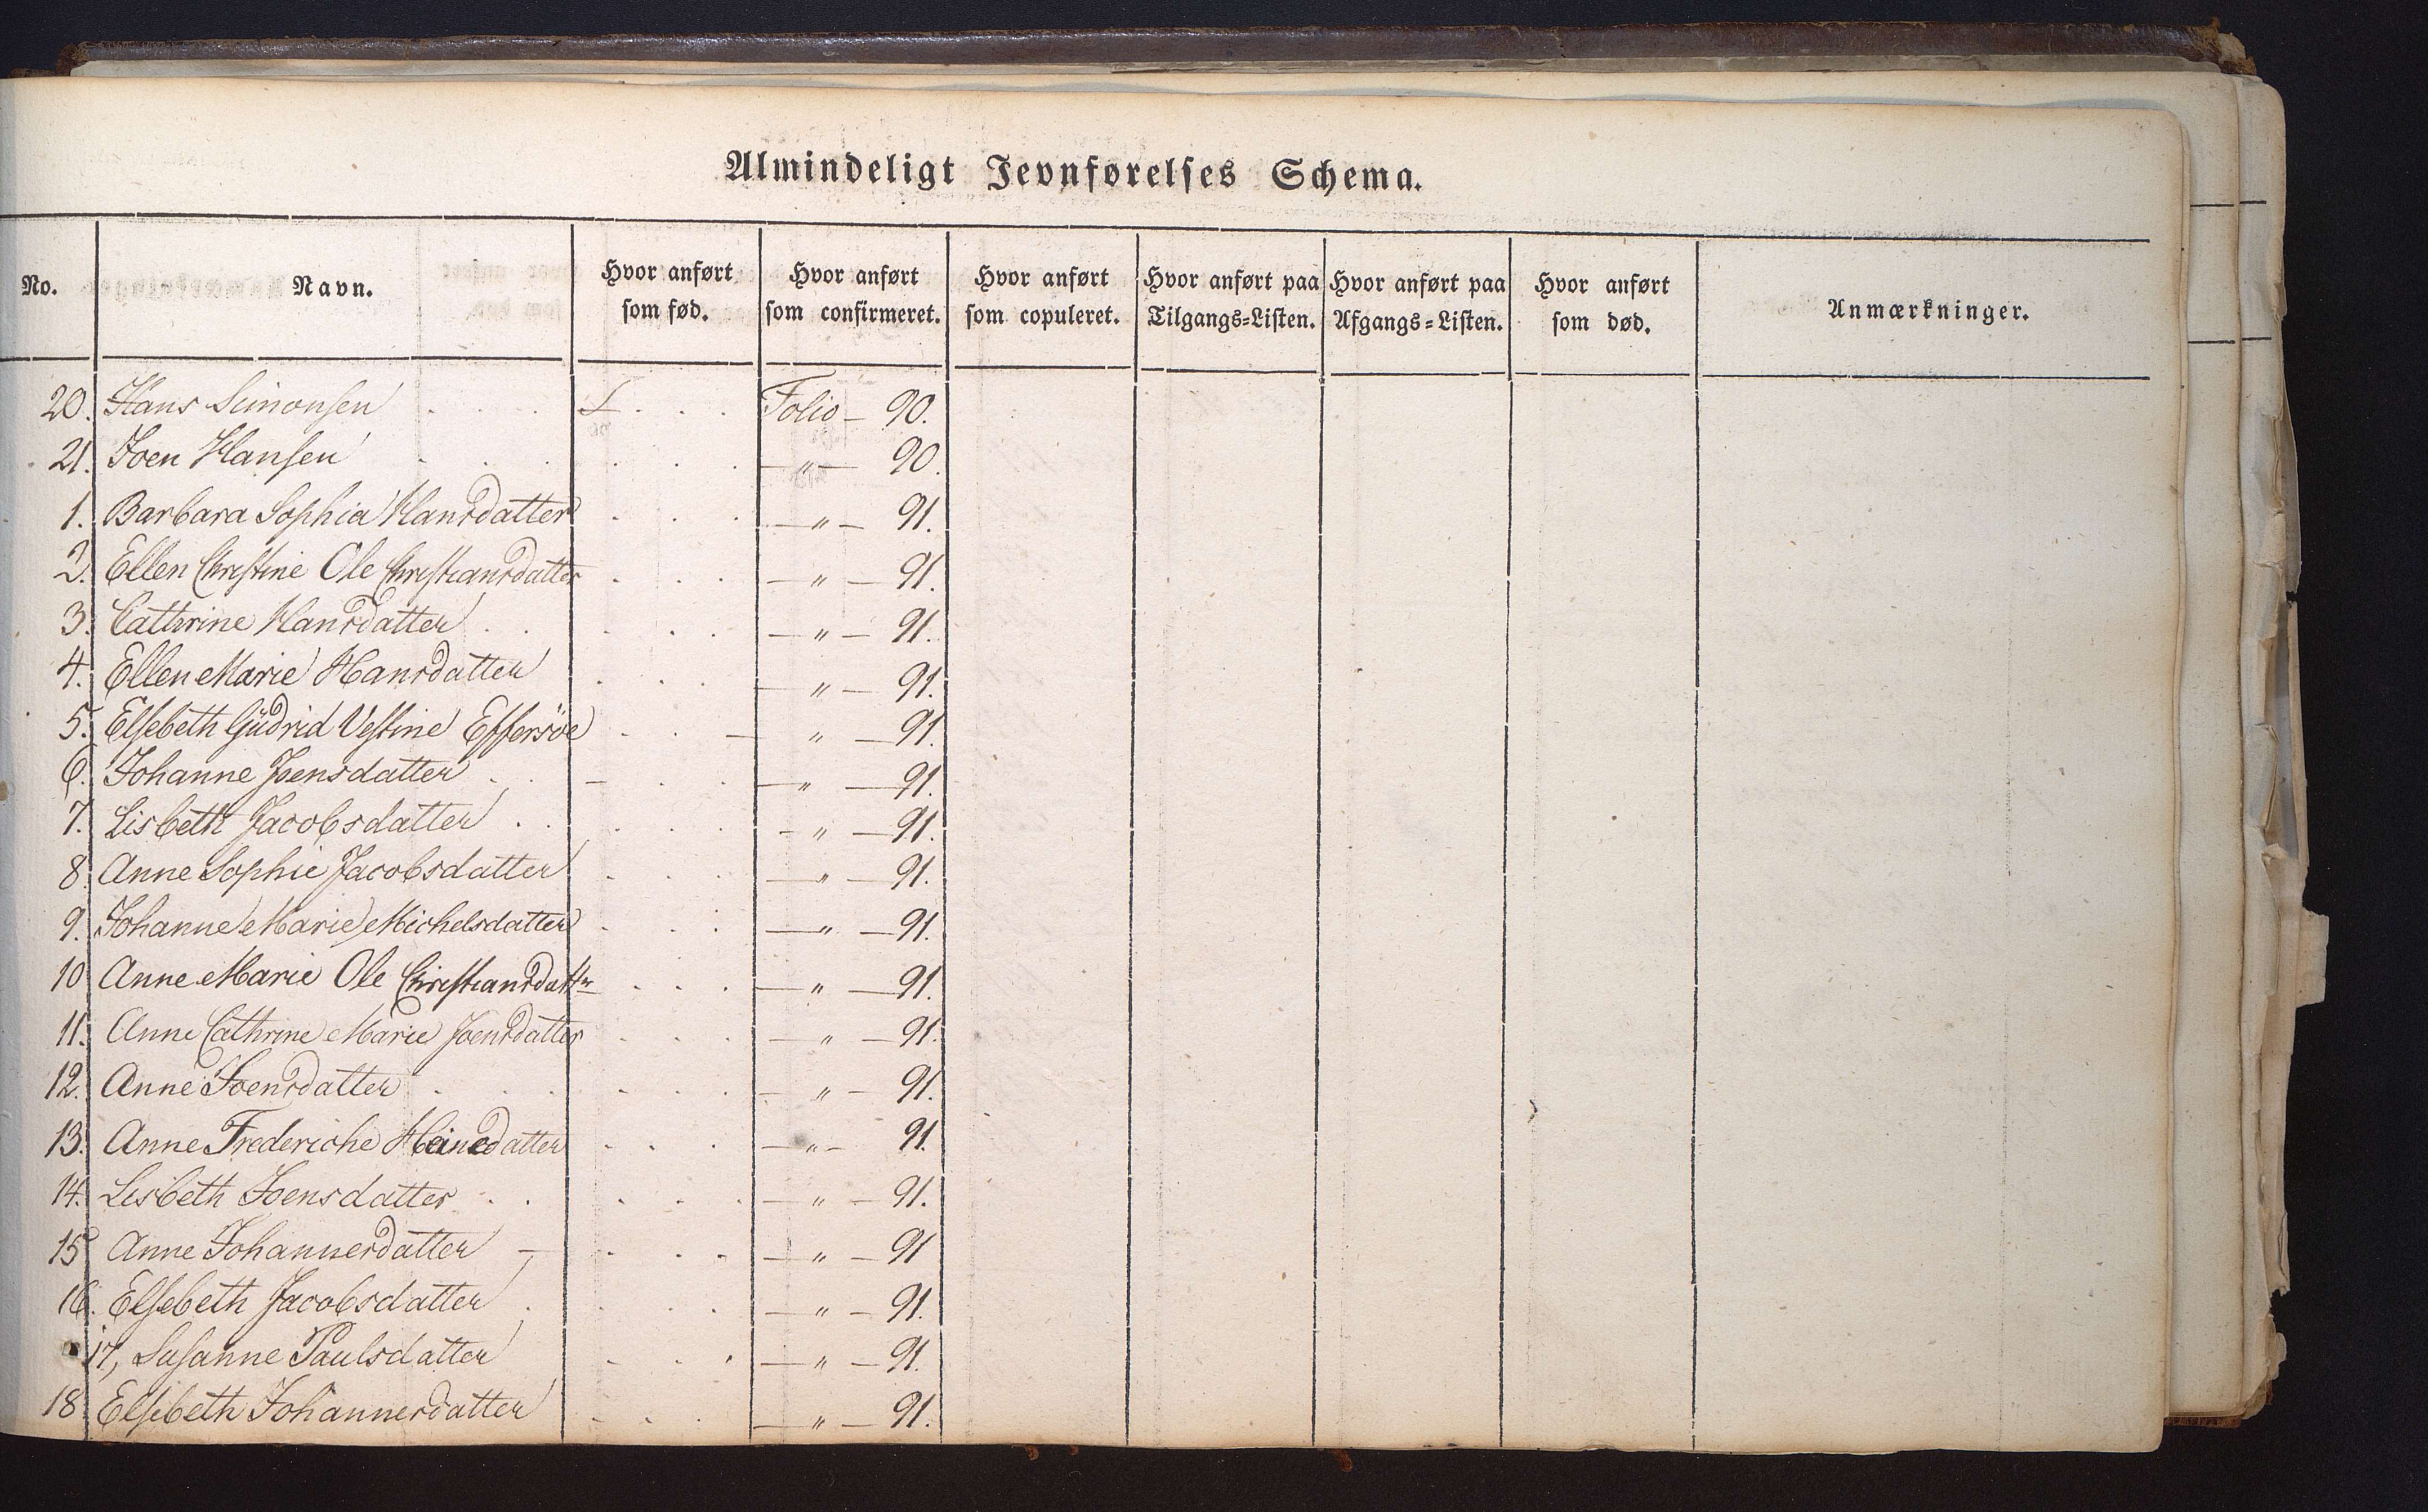 Almindeligt Jevnførelses Schema.
No. Navn. Hvor anført som fød. Hvor anført som confirmeret. Hvor anført som copuleret. Hvor anført paa Tilgangs=Listen. Hvor anført paa Afgangs=Listen. Hvor anført som død. Anmærkninger.
20. Hans Simonsen . . . . . . Folio – 90.
21. Joen Hansen . . . . . . — " — 90.
1. Barbara Sophia Hansdatter . . . — " — 91.
2. Ellen Christine Ole Christiansdatter . . . — " — 91.
3. Cathrine Hansdatter . . . . . — " — 91.
4. Ellen Marie Hansdatter . . . — " — 91.
5. Elsebeth Gudrid Vestine Effersöe . . — " — 91.
6. Johanne Joensdatter . . – . . — " — 91.
7. Lisbeth Jacobsdatter . . . . . – " — 91.
8. Anne Sophie Jacobsdatter . . . — " — 91.
9. Johanne Marie Michelsdatter . . . — " — 91.
10. Anne Marie Ole Christiansdattr . . . — " — 91.
11. Anne Cathrine Marie Joensdatter . . . — " — 91.
12. Anne Joensdatter . . . . . . — " – 91.
13. Anne Frederiche Heinedatter . . . — " – 91.
14. Lisbeth Joensdatter . . . . . — " — 91.
15. Anne Johannesdatter – . . . — " — 91
16. Elsebeth Jacobsdatter . . . . — " – 91.
17, Susanne Paulsdatter . . . — " – 91.
18. Elsebeth Johannesdatter . . . — " — 91.